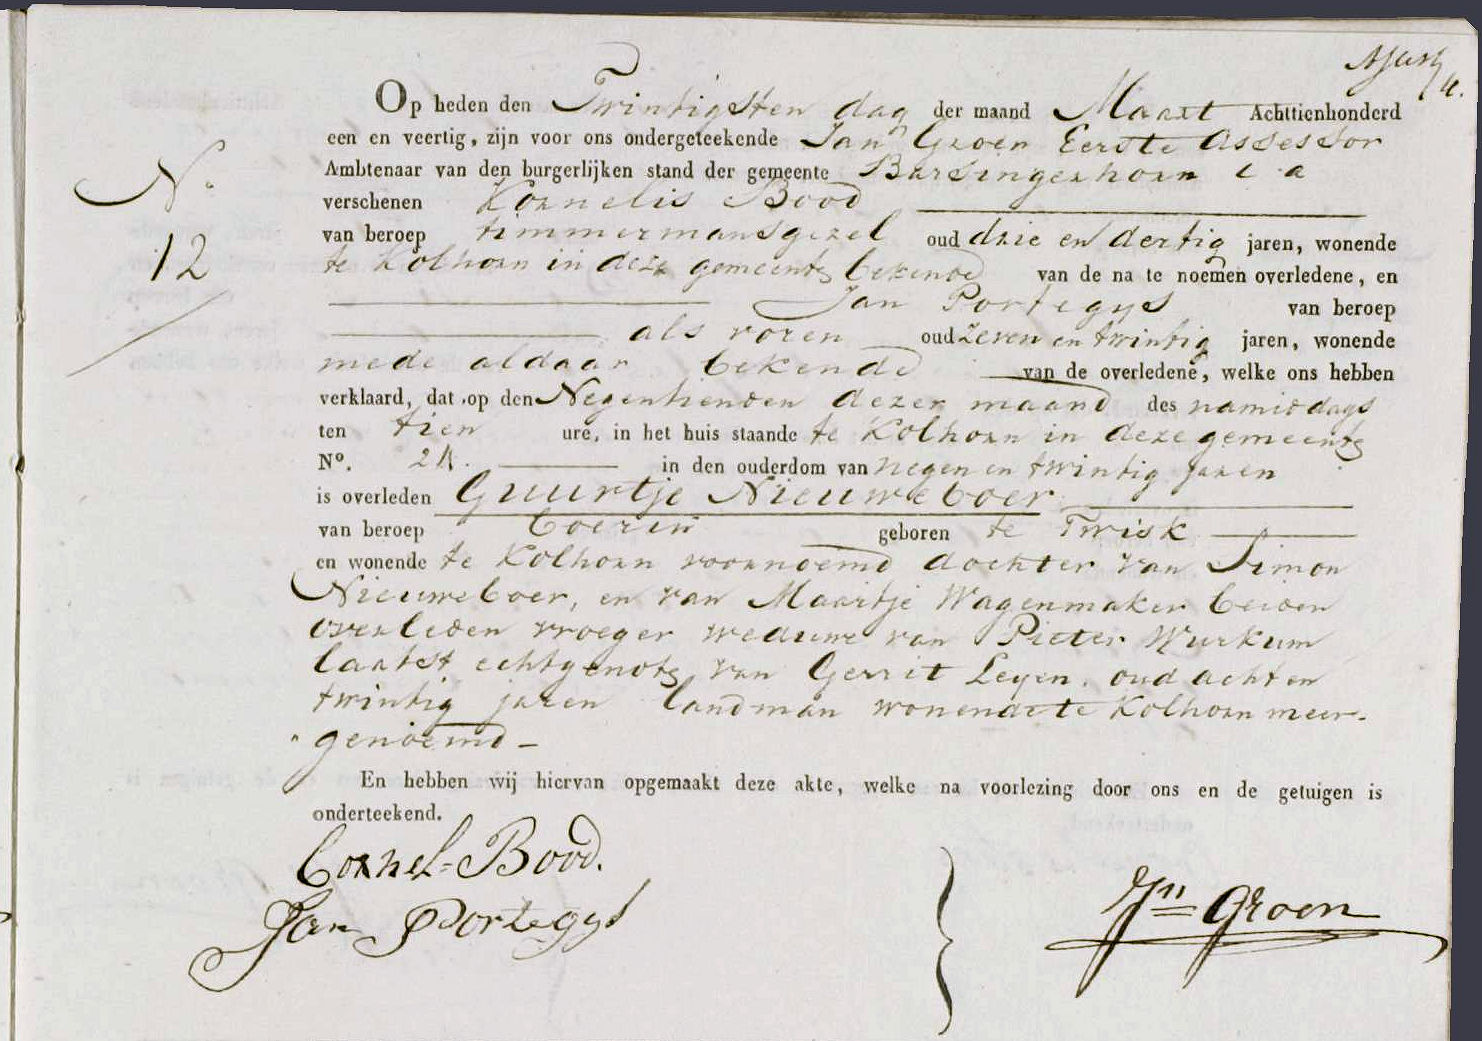 Op heden den Twintigsten dag der maand Maart Achttienhonderd
een en veertig, zijn voor ons ondergeteekende Jan Groen Eerste Assessor
Ambtenaar van den burgerlijken stand der gemeente Barsingerhorn c a
verschenen Kornelis Bood
van beroep timmermansgezel oud drie en dertig jaren, wonende
te Kolhorn in deze gemeente bekende van de na te noemen overledene, en
Jan Portegijs van beroep
als voren oud zeven en twintig jaren, wonende
mede aldaar bekende van de overledene, welke ons hebben
verklaard, dat op den Negentienden dezer maand des namiddags
ten tien ure, in het huis staande te Kolhorn in deze gemeente
No. 2 in den ouderdom van negen en twintig jaren
is overleden Guurtje Nieuweboer
van beroep boerin geboren te Twisk
en wonende te Kolhorn voornoemd dochter van Simon
Nieuweboer, en van Maartje Wagenmaker beiden
overleden vroeger weduwe van Pieter Wurkum
laatst echtgenote van Gerrit Leyen. oud acht en
twintig jaren landman wonende te Kolhorn meer-
genoemd -
En hebben wij hiervan opgemaakt deze akte, welke na voorlezing door ons en de getuigen is
onderteekend.
No.
12
Cornel. Bood.
Jan Portegijs
Jn Groen